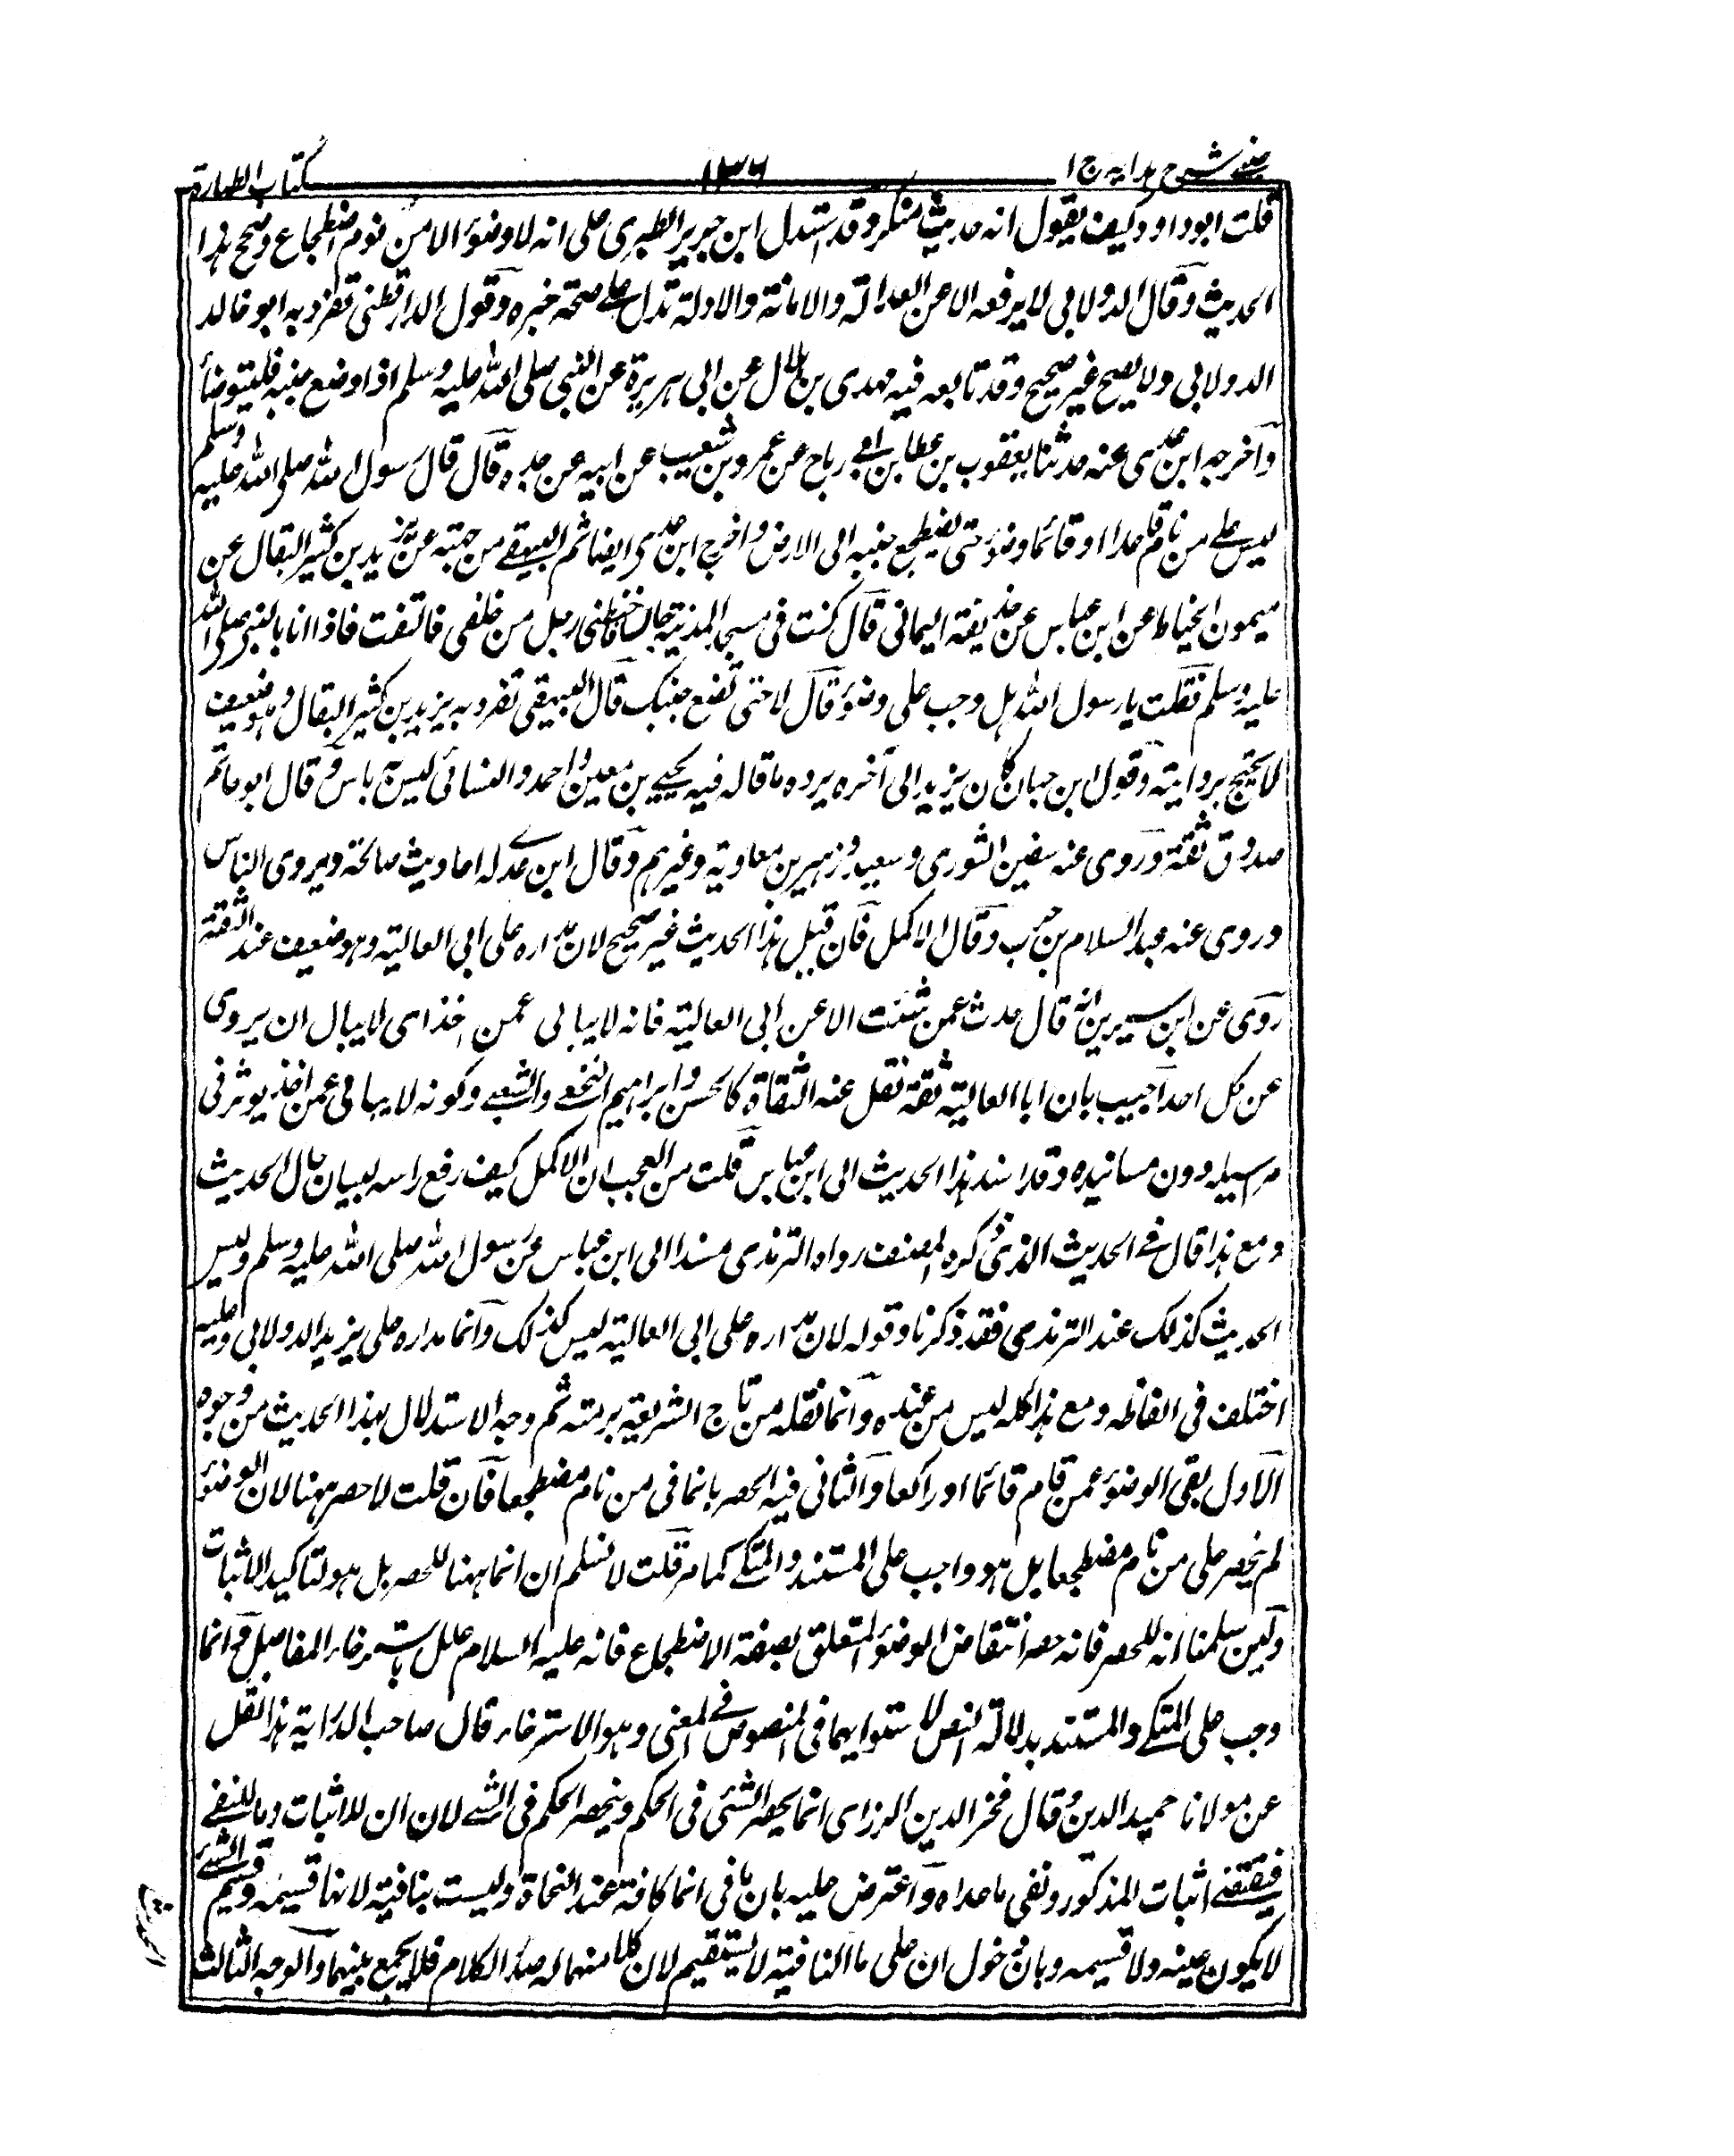 عینی شرح ہدایہ ج ا ۱۳۶ کتاب الطہارة
قلت ابو داود کیف یقول انه حدیث منکر وقد استدل ابن جریر الطبری علی انه لا وضوٴ الا من نوم اضطجاع وصحح ہذا
الحدیث وقال الدولابی لا یرفعه الا عن العدالة والامانة والادلة تدل علی صحة خبره وقول الدارقطنی تفرد به ابو خالد
الدولابی ولا یصح غیر صحیح وقد تابعه فیه مهدی بن ہلال عن ابی ہریرة عن النبی صلی الله علیه وسلم اذا وضع جنبه فلیتوضأ
واخرجه ابن عدی عنه حدثنا یعقوب بن عطا بن ابی رباح عن عمرو بن شعیب عن ابیه عن جده قال قال رسول الله صلی الله علیه وسلم
لیس علی من نام قاعدا او قائما وضوٴ حتی یضطجع جنبه الی الارض واخرج ابن عدی ایضا ثم البیهقی من جهته عن یزید بن کثیر البقال عن
میمون الخیاط عن ابن عباس عن حذیفة الیمانی قال کنت فی مسجد المدینة جالسا رجل من خلفی فالتفت فاذا انا بالنبی صلی الله
علیه وسلم فقلت یا رسول الله ہل وجب علی وضوٴ قال لا حتی تضع جنبک قال البیهقی تفرد به یزید بن کثیر البقال وہو ضعیف
لا یحتج بروایته وقول ابن حبان کان یزید الی آخره یرده ما قاله فیه یحیی بن معین واحمد والنسائی لیس به باس وقال ابو حاتم
صدوق ثقة وروی عنه سفین الثوری وسعید وزہیر بن معاویة وغیرہم وقال ابن عدی له احادیث صالحة ویروی الناس
وروی عنه عبد السلام بن حرب وقال الاکمل فان قیل ہذا الحدیث غیر صحیح لان مداره علی ابی العالیة وہو ضعیف عند الثقة
روی عن ابن سیرین انه قال حدث عمن شئت الا عن ابی العالیة فانه لا یبالی عمن اخذ ای لا یبال ان یروی
عن کل احد اجیب بان ابا العالیة ثقة نقل عنه الثقاة کالحسن وابراہیم النخعی والشعبی وکونه لا یبالی عمن اخذ یوثر فی
مرسیله دون مسانیده وقد اسند ہذا الحدیث الی ابن عباس قلت من العجب ان الاکمل کیف رفع راسه لبیان حال الحدیث
ومع ہذا قال فی الحدیث الذی ذکره المصنف رواه الترمذی مسندا الی ابن عباس عن رسول الله صلی الله علیه وسلم ولیس
الحدیث کذلک عند الترمذی فقد ذکرنا وقوله لان مداره علی ابی العالیة لیس کذلک وانما مداره علی یزید الدولابی وعلیه
اختلف فی الفاظه ومع ہذا کله لیس من عنده وانما نقله من تاج الشریعة برمته ثم وجه الاستدلال بهذا الحدیث من وجوه
الاول بقی الوضوٴ عمن قام قائما او راکعا والثانی فیه الحصر بانما فی من نام مضطجعا فان قلت لا حصر ہهنا لان الوضوٴ
لم یحصر علی من نام مضطجعا بل ہو واجب علی المستند والمتکی کما مر قلت لا نسلم ان انما ہهنا للحصر بل ہو لتاکید الاثبات
ولئن سلمنا انه للحصر فانه حصر انتقاض الوضوٴ المتعلق بصفة الاضطجاع فانه علیه السلام علل باسترخاء المفاصل وانما
وجب علی المتکی والمستند بدلالة النص لاستوایهما فی المنصوص فی المعنی وہو الاسترخاء قال صاحب الدرایة ہذا نقل
عن مولانا حمید الدین وقال فخر الدین الرازی انما یحصر الشئی فی الحکم وینحصر الحکم فی الشی لان ان للاثبات وما للنفی
فیقتضی اثبات المذکور ونفی ما عداه واعترض علیه بان ما فی انما کافة عند النحاة ولیست بنافیة لانها قسیمه وقسیم الشئ
لا یکون عینه ولا قسیمه وبان دخول ان علی ما النافیة لا یستقیم لان کلا منهما له صدر الکلام فلا یجمع بینهما والوجه الثالث
الحدیث